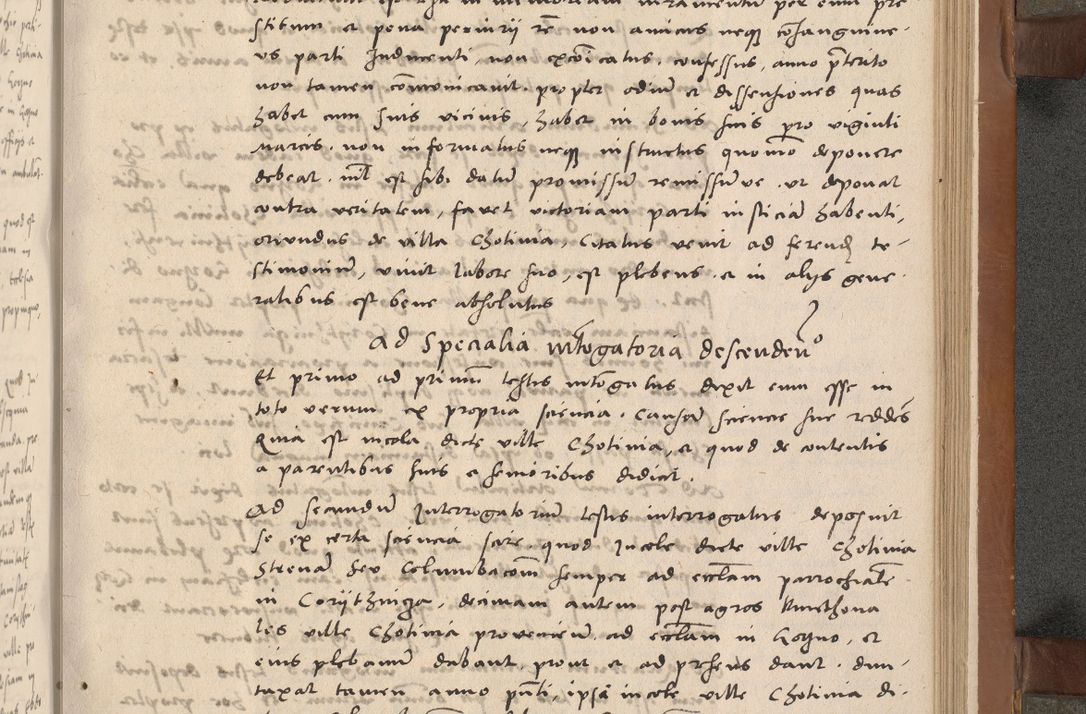 stitum et pena periurii rem̃ non amicus neqȝ cõsanguine
us parti Inducenti, non excõicatus, confessus, anno p̃terito
non tamen cõmonicavit, propter odium et dissensiones quas
habet cum suis vicinis, habet in bonis suis pro viginti
Marcis, non informatus neqȝ instructus quomõ deponere
debeat, nil est sibi datum promissum remissumve, ut deponat
contra veritatem, favet victoriam parti iusticiam habenti,
oriundus de villa Chotinia, Citatus venit ad ferend te-
stimonium, vivit labore suo, est plebeus, et in alys gene
ralibus est bene absolutus
Ad Specialia int̃rogatoria descenden̄º
Et primo ad primũ testis int̃rogatus dixit eum esse in
toto verum ex propria sciencia, causam sciencie sue reddẽs
Quia est incola dicte ville Chotinia, et quod de contentis
a parentibus suis et senioribus didicit.
Ad secundum Interrogatorium testis interrogatus deposuit
se ex certa sciencia scire, quod Incole dicte ville Chotinia
Strenam seu Columbacõm semper ad ecclãm parrochialẽ
in Coriithnicza, decimam autem post agros Kmethona
les ville Chotinia provenien̄ ad ecclãm in Gogno, et
eius plebanum dabant, prout et ad presens dant, dun-
taxat tamen anno pñti, ipsi incole ville Chotinia di-